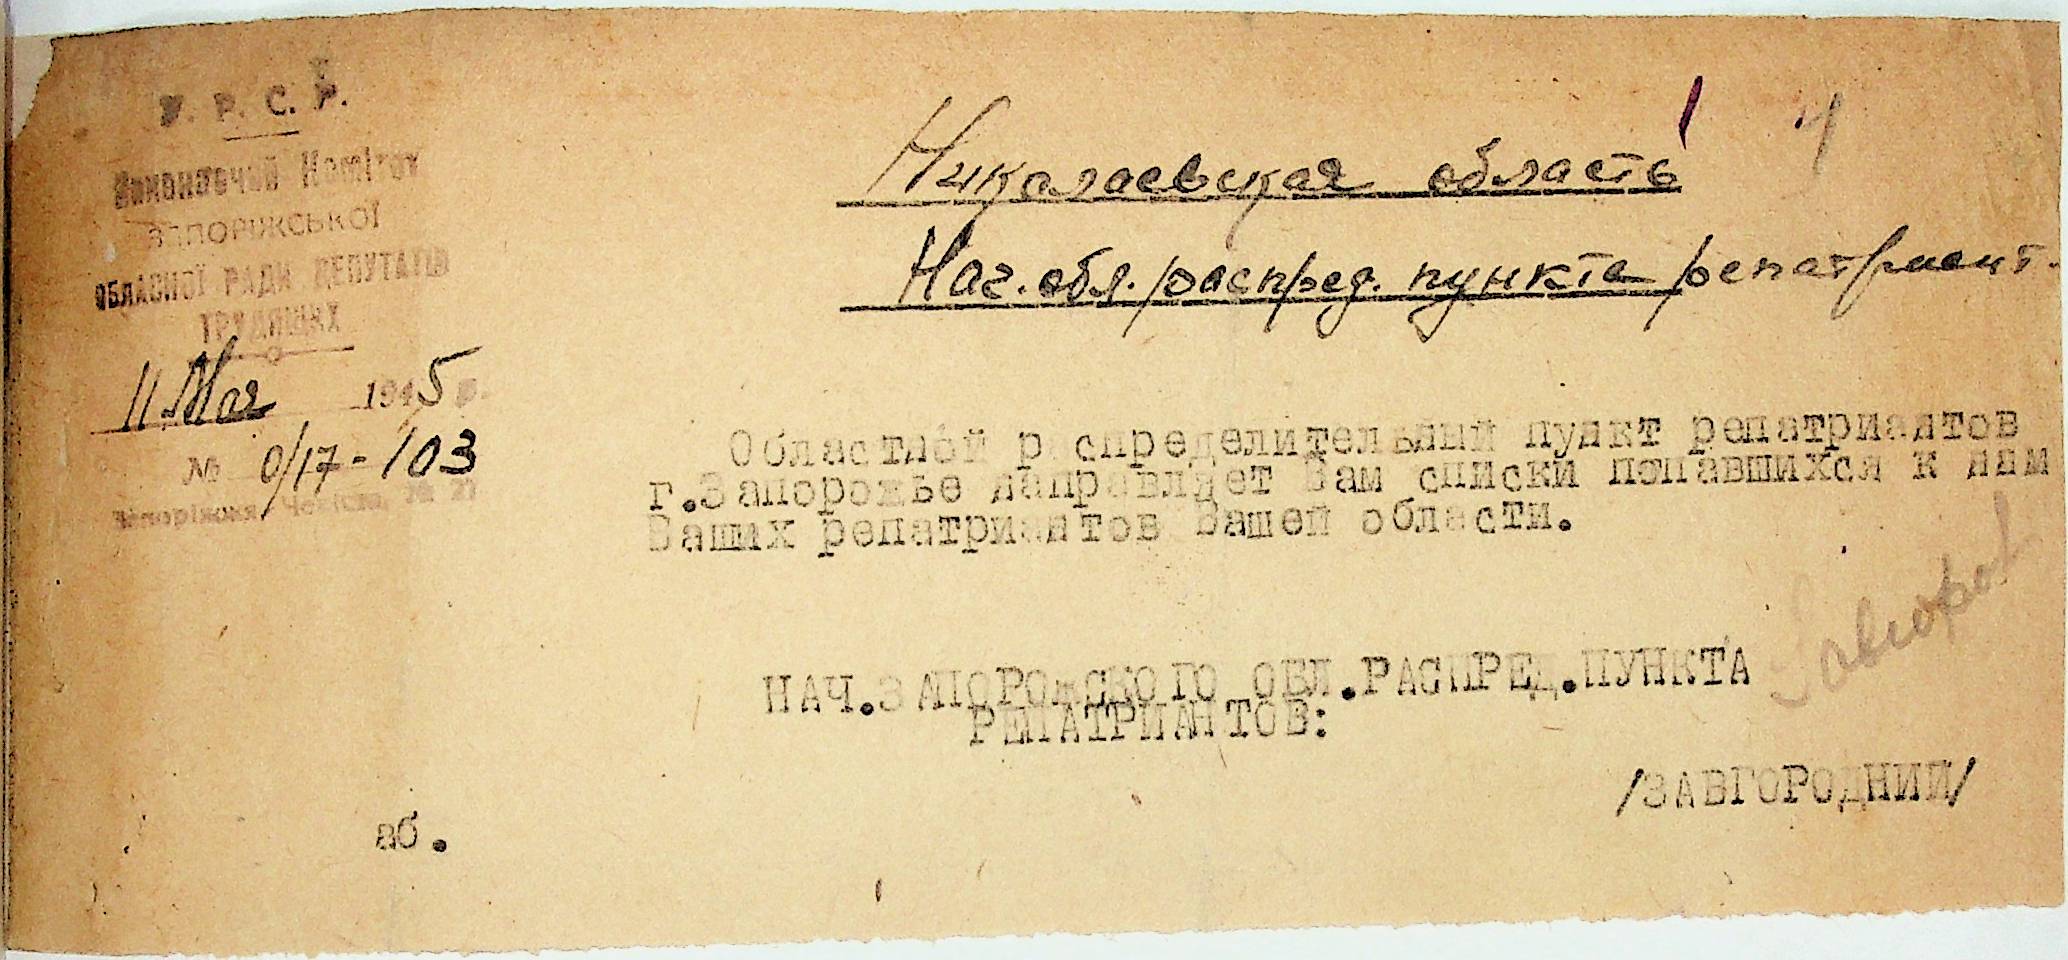 У. Р. С. Р.
Виконавчий Комітет
ЗАПОРІЖСЬКОЇ
ОБЛАСНОЇ РАДИ ДЕПУТАТІВ
ТРУДЯЩИХ
11 Мая 1945 р.
№ 0/17-103
Запоріжжя, Чекіста,
1 4
Николаевская область
Нач. обл. распред. пункта репатриант.
Областной распределительный пункт репатриантов
г.Запорожье направляет Вам списки попавшихся к нам
Ваших репатриантов Вашей области.
НАЧ.ЗАПОРОЖСКОГО ОБЛ.РАСПРЕД.ПУНКТА
РЕПАТРИАНТОВ:
/ЗАВГОРОДНИЙ/
аб.